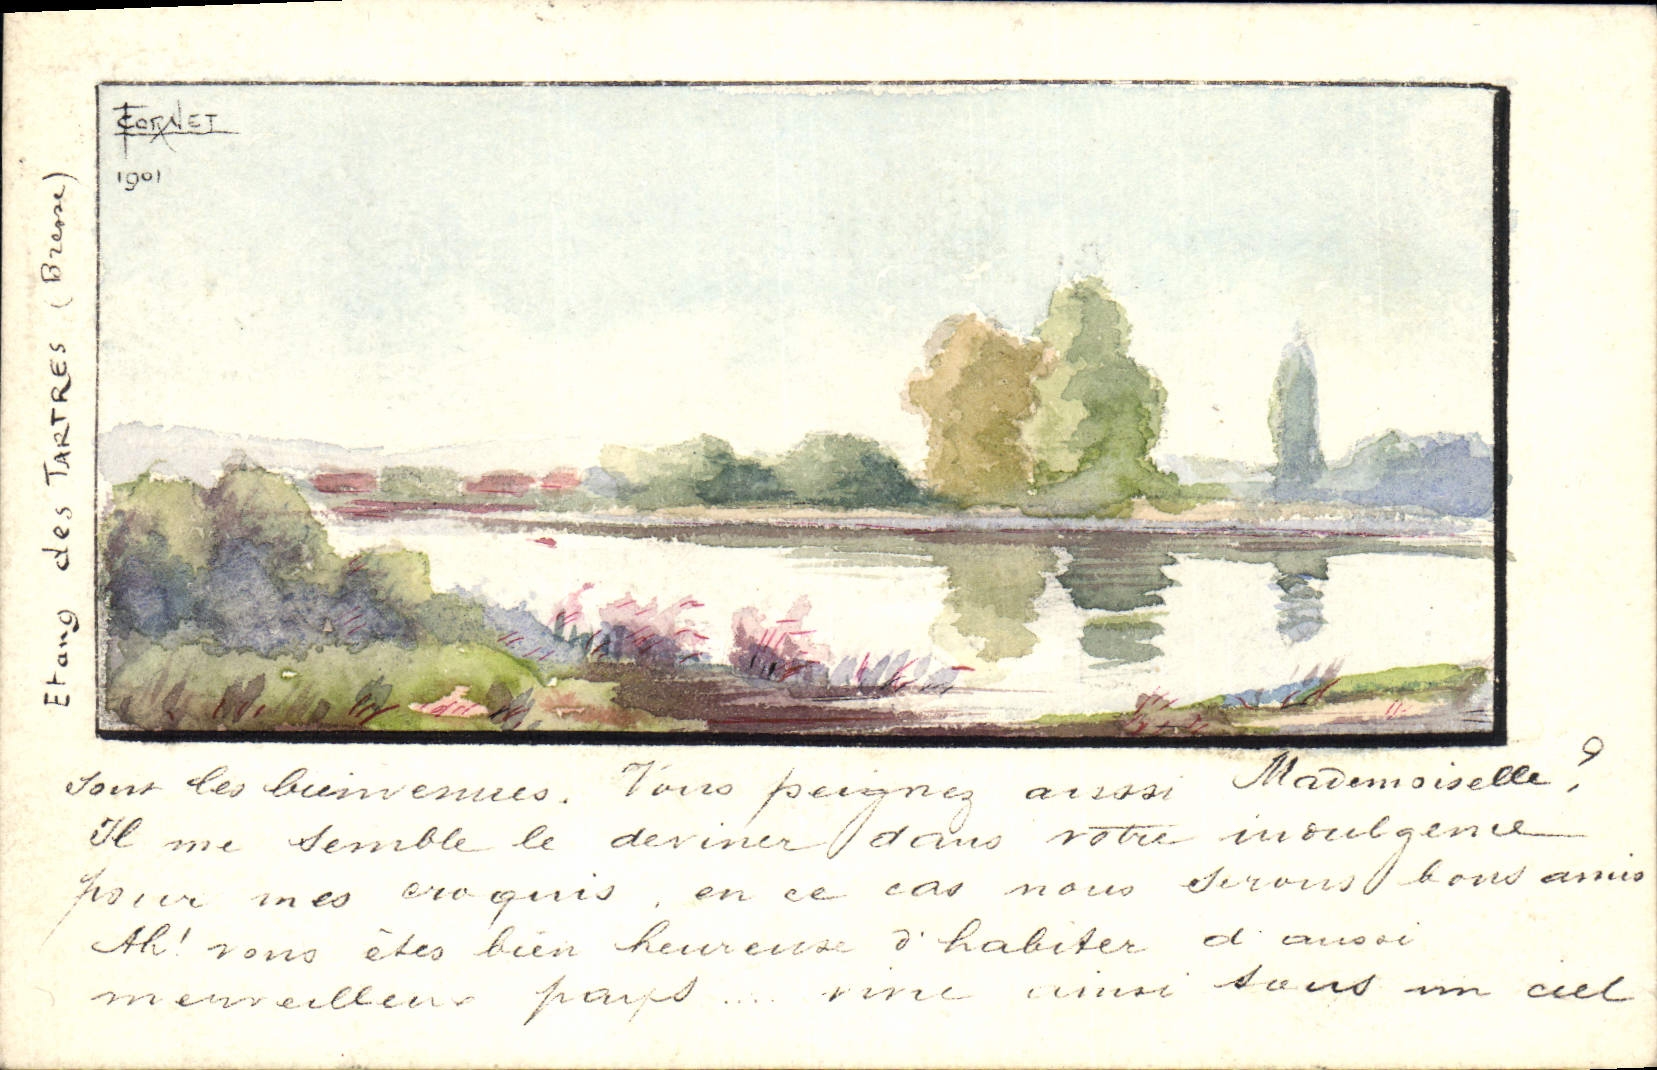 CORNET
1901
Etang des TARTRES (Bresse)
sont les bienvenues. Vous peignez aussi Mademoiselle ?
Il me semble le deviner dans votre indulgence
pour mes croquis, en ce cas nous serons bons amis
Ah! vous êtes bien heureuse d'habiter d'aussi
merveilleux pays .... vivre ainsi sous un ciel